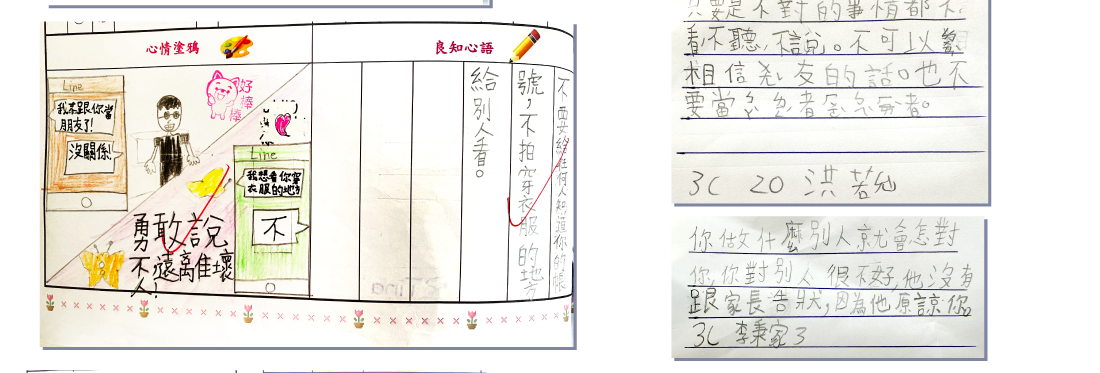 心情塗鴉
良知心語
Line
我不跟你當
朋友了!
沒關係!
好棒棒
Line
我想看你穿
衣服的地方
不
勇敢說
不遠離壞
人!
不要給任何人知道你的帳
號,不拍穿衣服的地方
給別人看。
只要是不對的事情都不
看不聽,不說。不可以
相信 友的話。也不
要當 者 者。
3C 20 洪若
你做什麼別人就會怎對
你,你對別人很不好,他沒有
跟家長告狀,因為他原諒你。
3C 李秉家3